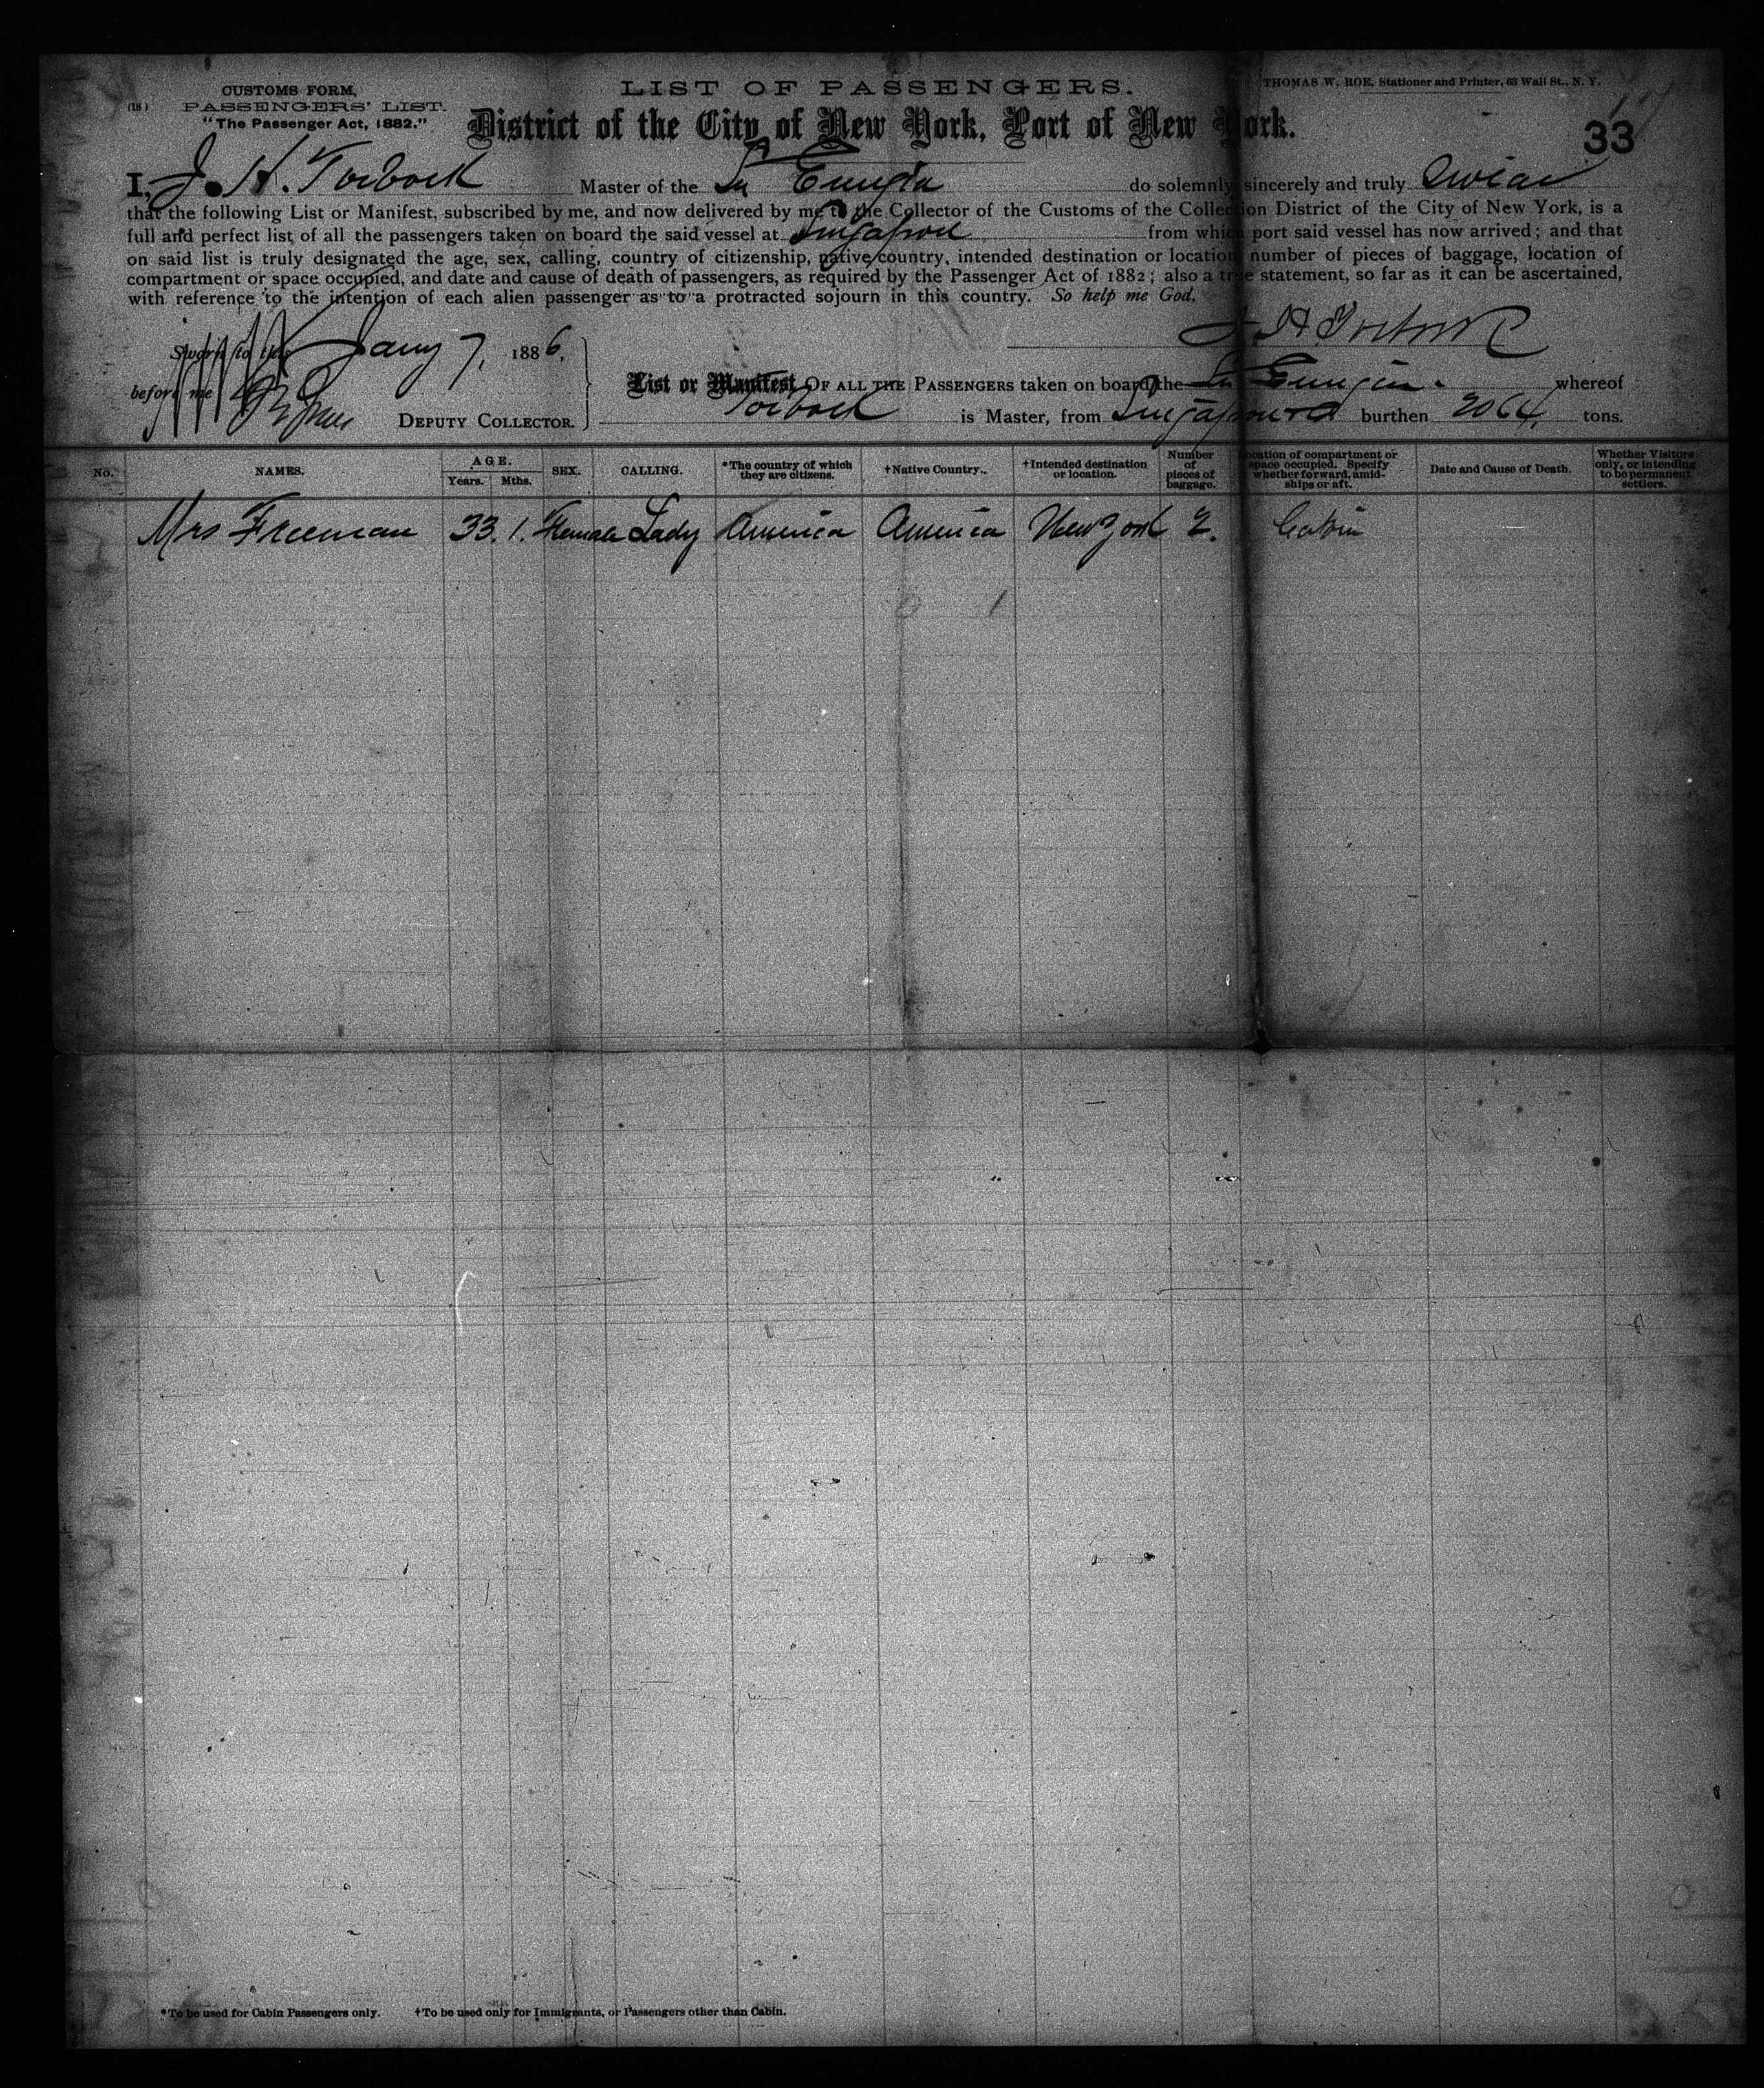 CUSTOMS FORM,
(18) PASSENGERS' LIST.
"The Passenger Act, 1882."
LIST OF PASSENGERS.
THOMAS W. ROE, Stationer and Printer, 63 Wall St., N. Y.
District of the City of New York, Port of New York.
33
I, J. H. Master of the do solemnly, sincerely and truly swear
that the following List or Manifest, subscribed by me, and now delivered by me to the Collector of the Customs of the Collection District of the City of New York, is a
full and perfect list of all the passengers taken on board the said vessel at Singapore from which port said vessel has now arrived; and that
on said list is truly designated the age, sex, calling, country of citizenship, native country, intended destination or location, number of pieces of baggage, location of
compartment or space occupied, and date and cause of death of passengers, as required by the Passenger Act of 1882; also a true statement, so far as it can be ascertained,
with reference to the intention of each alien passenger as to a protracted sojourn in this country. So help me God.
Sworn to this Jany 7, 1886,
before me
DEPUTY COLLECTOR.
List or Manifest OF ALL THE PASSENGERS taken on board the whereof
is Master, from Singapore burthen 2064, tons.
No. NAMES. AGE. Years. Mths. SEX. CALLING. *The country of which they are citizens. †Native Country. †Intended destination or location. Number of pieces of baggage. Location of compartment or space occupied. Specify whether forward, amidships or aft. Date and Cause of Death. Whether Visitors only, or intending to be permanent settlers.
Mrs Freeman 33. 1. Female Lady America America New York 2. Cabin
0 1
*To be used for Cabin Passengers only. †To be used only for Immigrants, or Passengers other than Cabin.